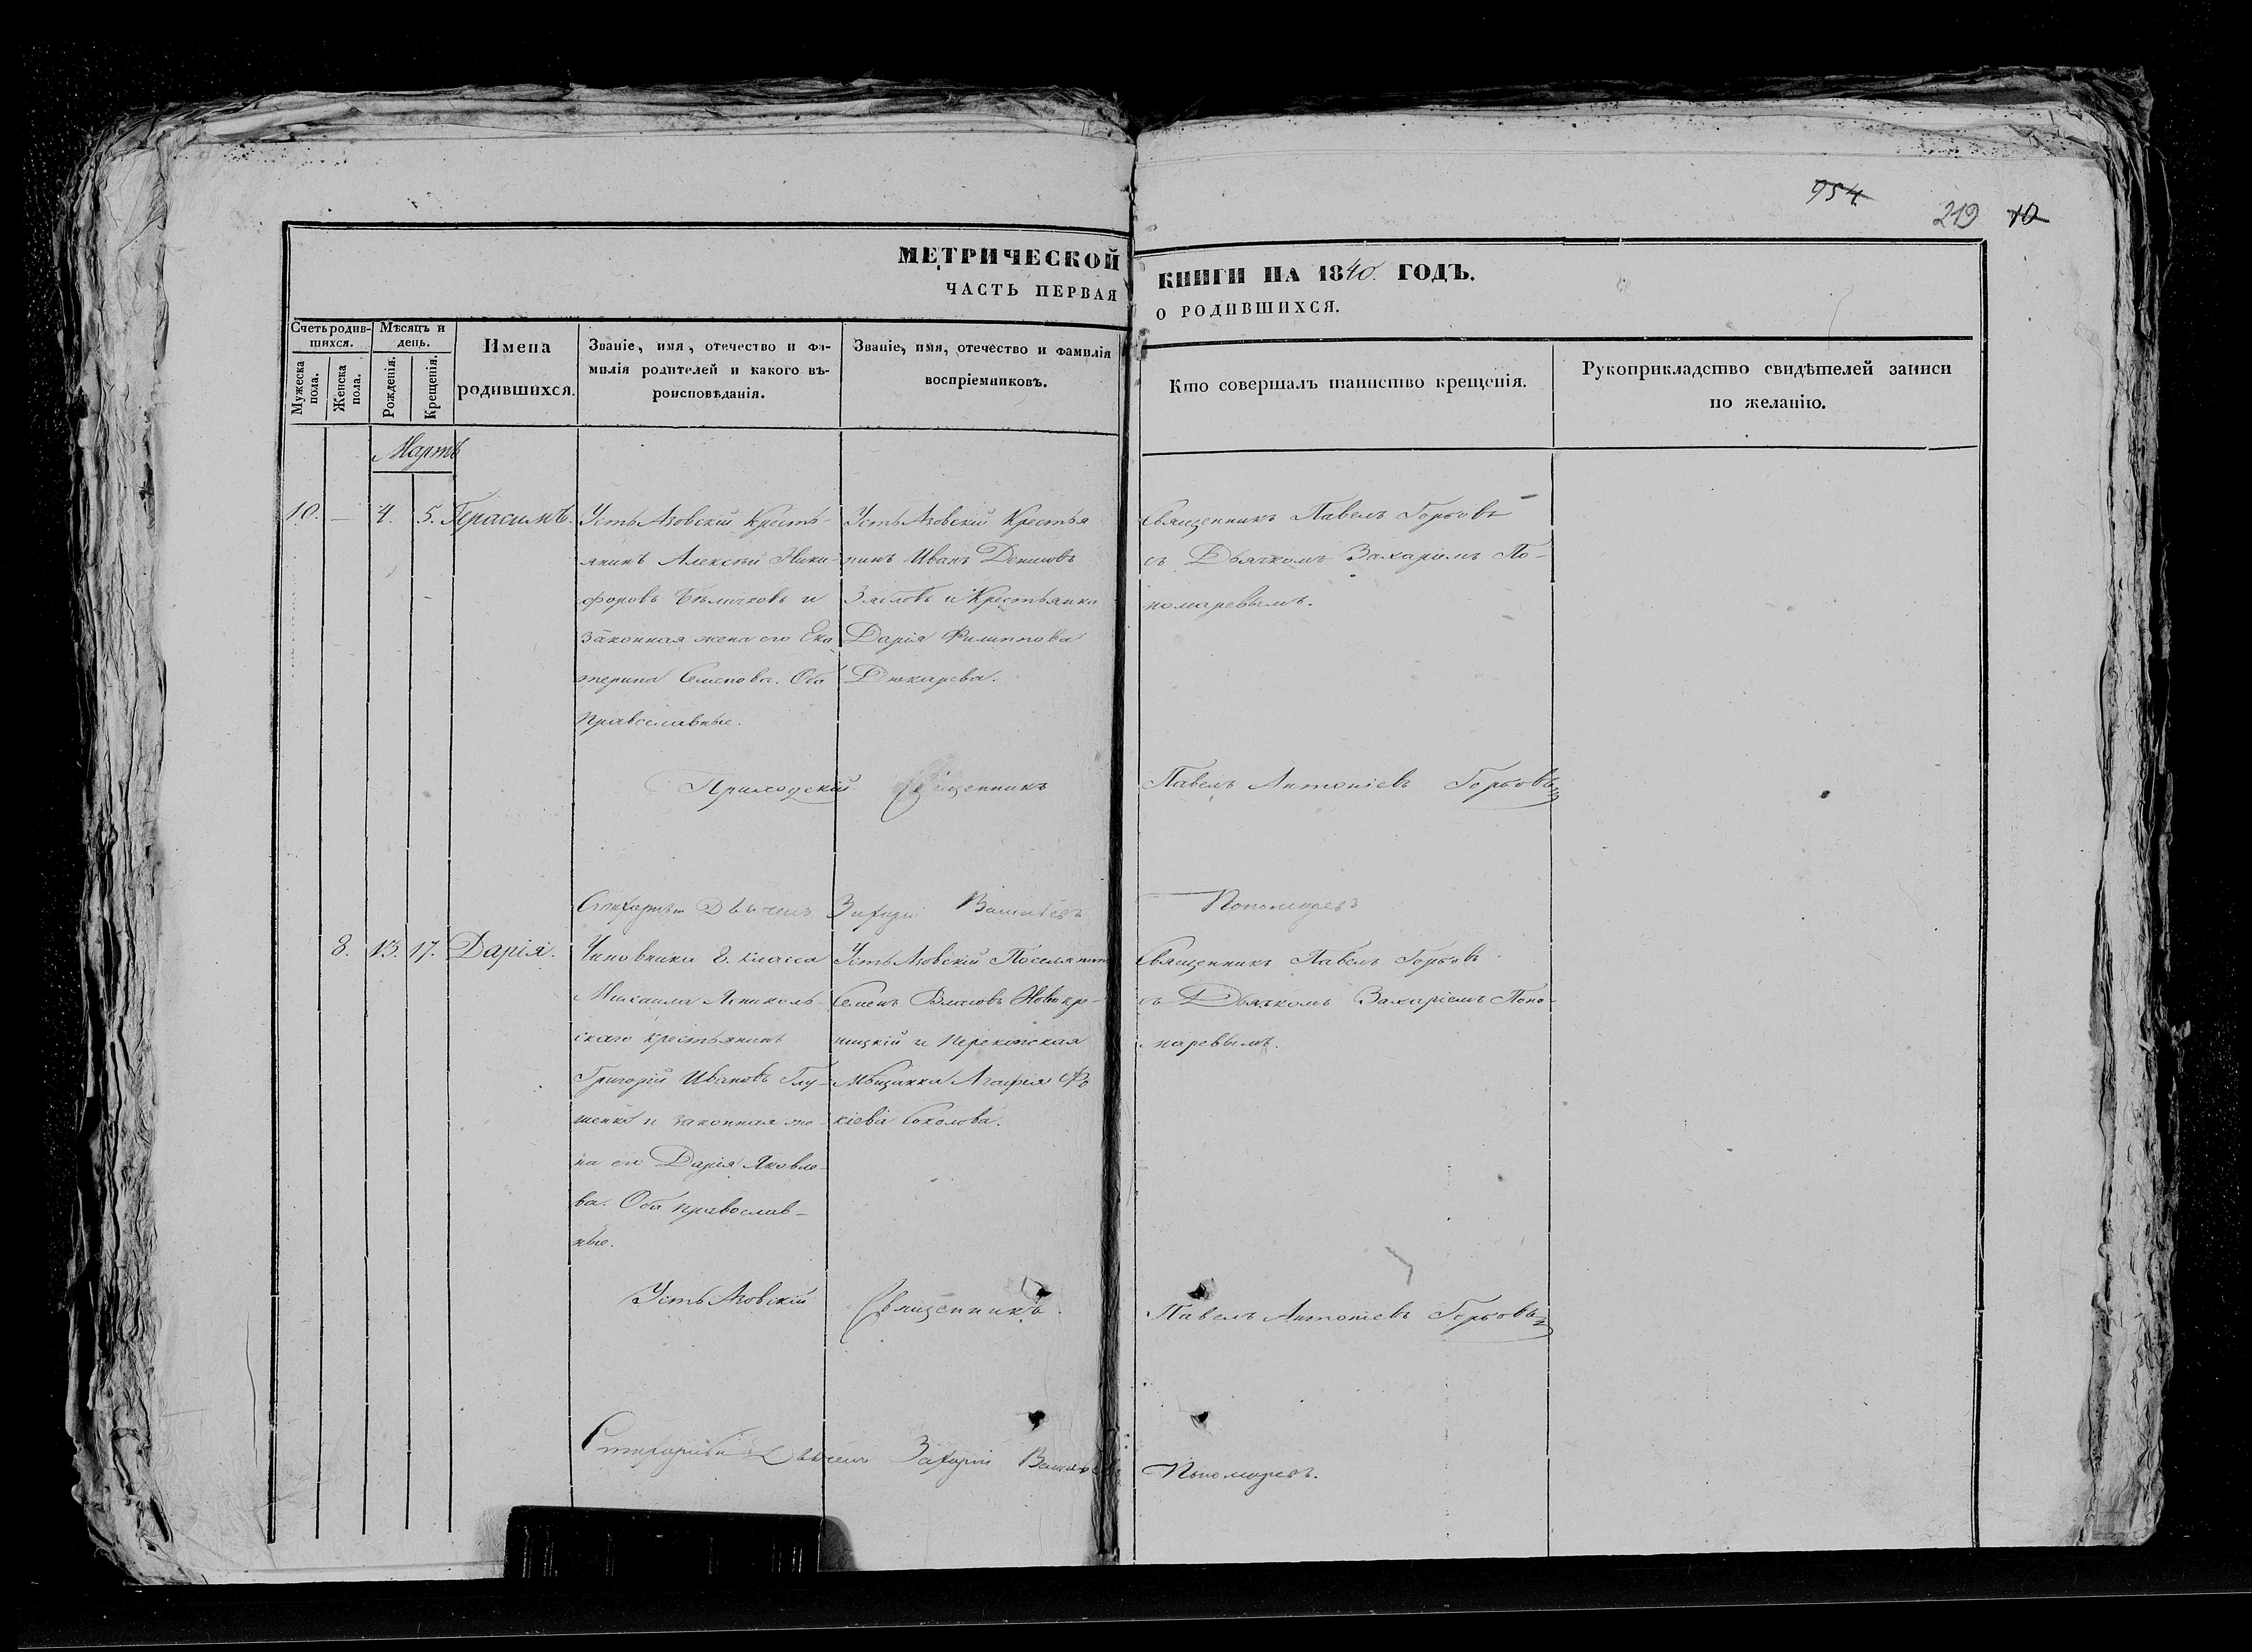 954
219 10
МЕТРИЧЕСКОЙ КНИГИ НА 1840. ГОДЪ.
ЧАСТЬ ПЕРВАЯ О РОДИВШИХСЯ.
Счетъ родив-
шихся.
Мѣсяцъ и
день.
Мужеска
пола.
Женска
пола.
Рожденія.
Крещенія.
Имена
родившихся.
Званіе, имя, отчество и фа-
милія родителей и какого вѣ-
роисповѣданія.
Званіе, имя, отечество и фамилія
воспріемниковъ.
Кто совершалъ таинство крещенія.
Рукоприкладство свидѣтелей записи
по желанію.
Мартъ
10. — 4. 5. Герасимъ.
Усть Азовскій Кресть-
янинъ Алексѣй Ники-
форовъ Бѣличковъ и
законная жена его Ека
терина Семенова. Оба
православные.
Усть Азовскій Крестья
нинъ Иванъ Денисовъ
и Крестьянка
Дарія Филиппова
Дюкарева.
Священникъ Павелъ Горбовъ
съ Дьячкомъ Захаріемъ По-
номаревымъ.
Приходскій Священникъ Павелъ Антоніевъ Горбовъ
Стихарный Дьячекъ Захарій Пономаревъ
8. 13. 17. Дарія.
Чиновника 8. класса
Михаила
скаго крестьянинъ
Григорій Ивановъ Глу-
шенко и законная же-
на его Дарія Яковле-
ва. Оба православ-
ные.
Усть Азовскій Поселянинъ
Семенъ Власовъ Новокре-
щицкій и Перекопская
Мѣщанка Агафія Фо
кіева Соколова.
Священникъ Павелъ Горбовъ
съ Дьячкомъ Захаріемъ Поно-
маревымъ.
Усть Азовскій Священникъ. Павелъ Антоніевъ Горбовъ
Стихарный Дьячекъ Захарій Пономаревъ.